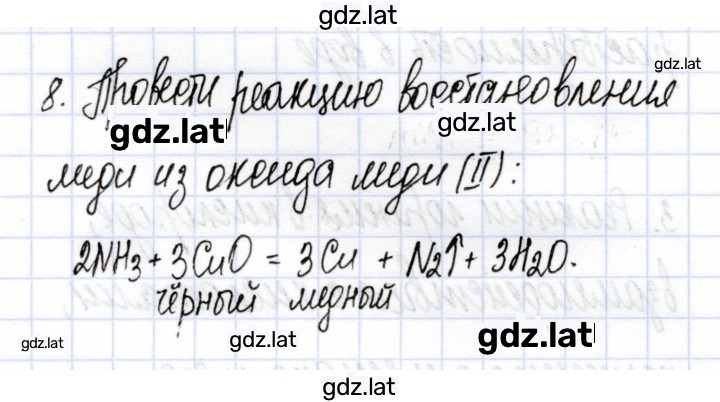 gdz.lat
gdz.lat
8. Провести реакцию восстановления
gdz.lat
gdz.lat
меди из оксида меди (II):
2NH3 + 3CuO = 3Cu + N2↑ + 3H2O.
чёрный медный
gdz.lat
gdz.lat
gdz.lat
gdz.lat